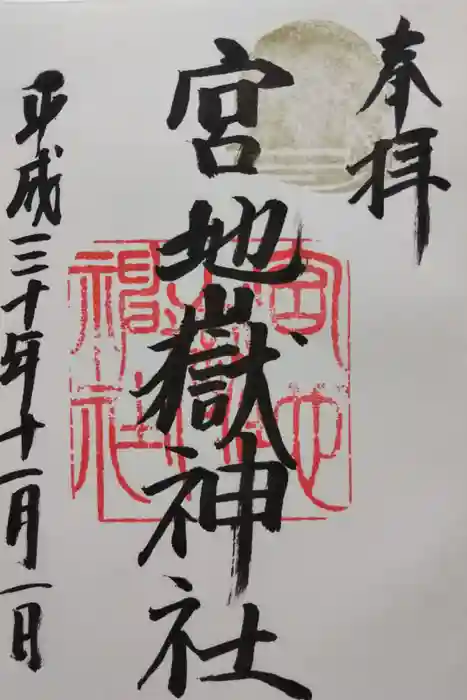 奉拝
宮地嶽神社
宮地嶽神社
平成三十年十一月一日